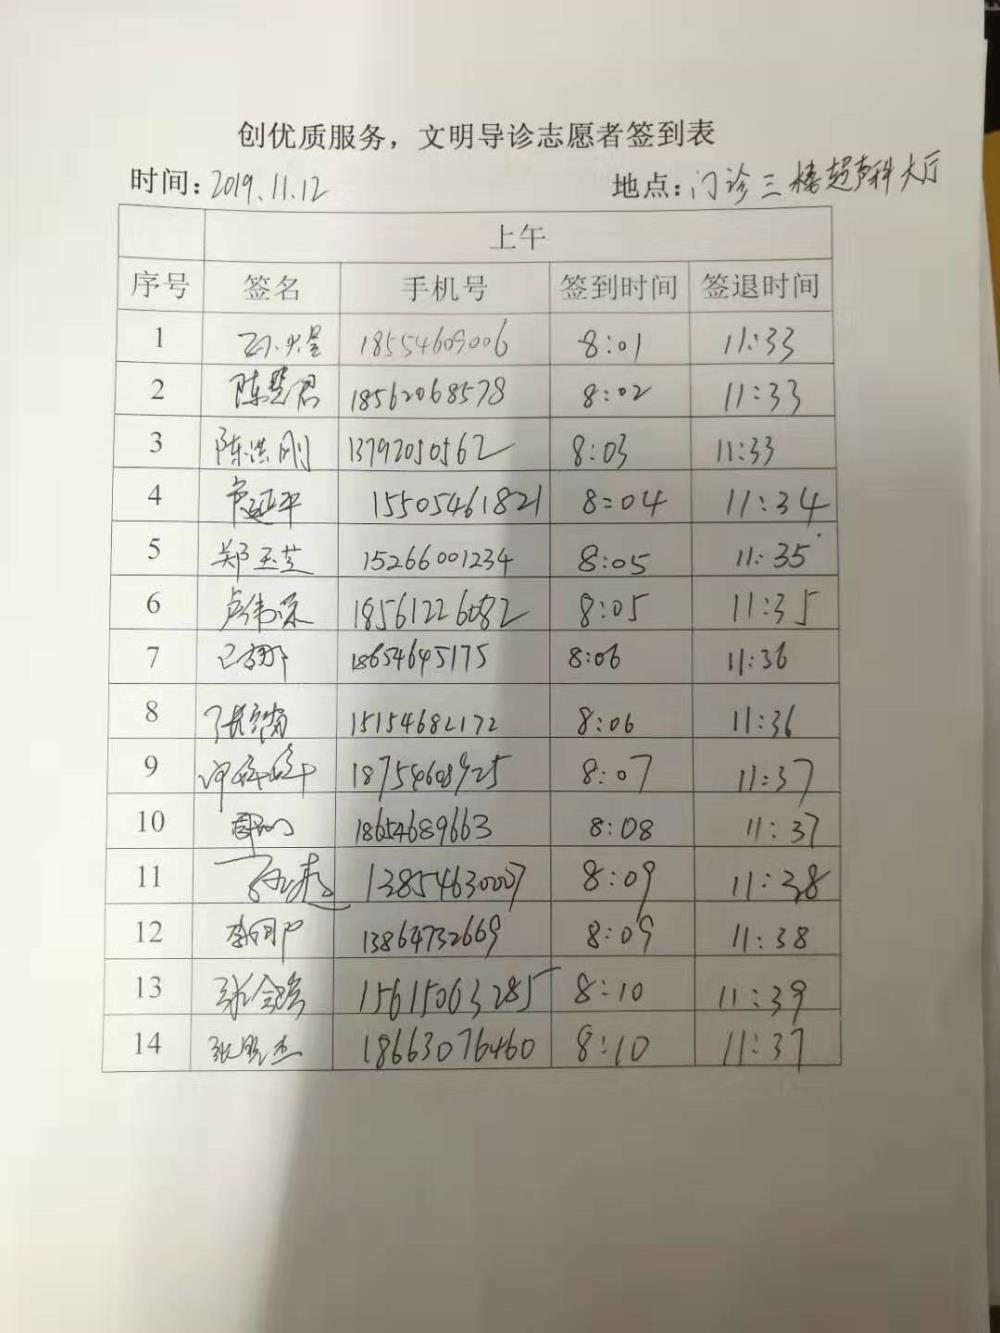 创优质服务，文明导诊志愿者签到表
时间：2019.11.12 地点：门诊三楼超声科大厅
上午
序号 签名 手机号 签到时间 签退时间
1 18554609006 8:01 11:33
2 陈慧君 18562068578 8:02 11:33
3 陈洪刚 13792050562 8:03 11:33
4 15505461821 8:04 11:34
5 郑玉芝 15266001234 8:05 11:35
6 18561226082 8:05 11:35
7 18654645175 8:06 11:36
8 15154682172 8:06 11:36
9 18754608925 8:07 11:37
10 18654689663 8:08 11:37
11 13854630007 8:09 11:38
12 13864732669 8:09 11:38
13 15615063285 8:10 11:39
14 张晓杰 18663076460 8:10 11:37